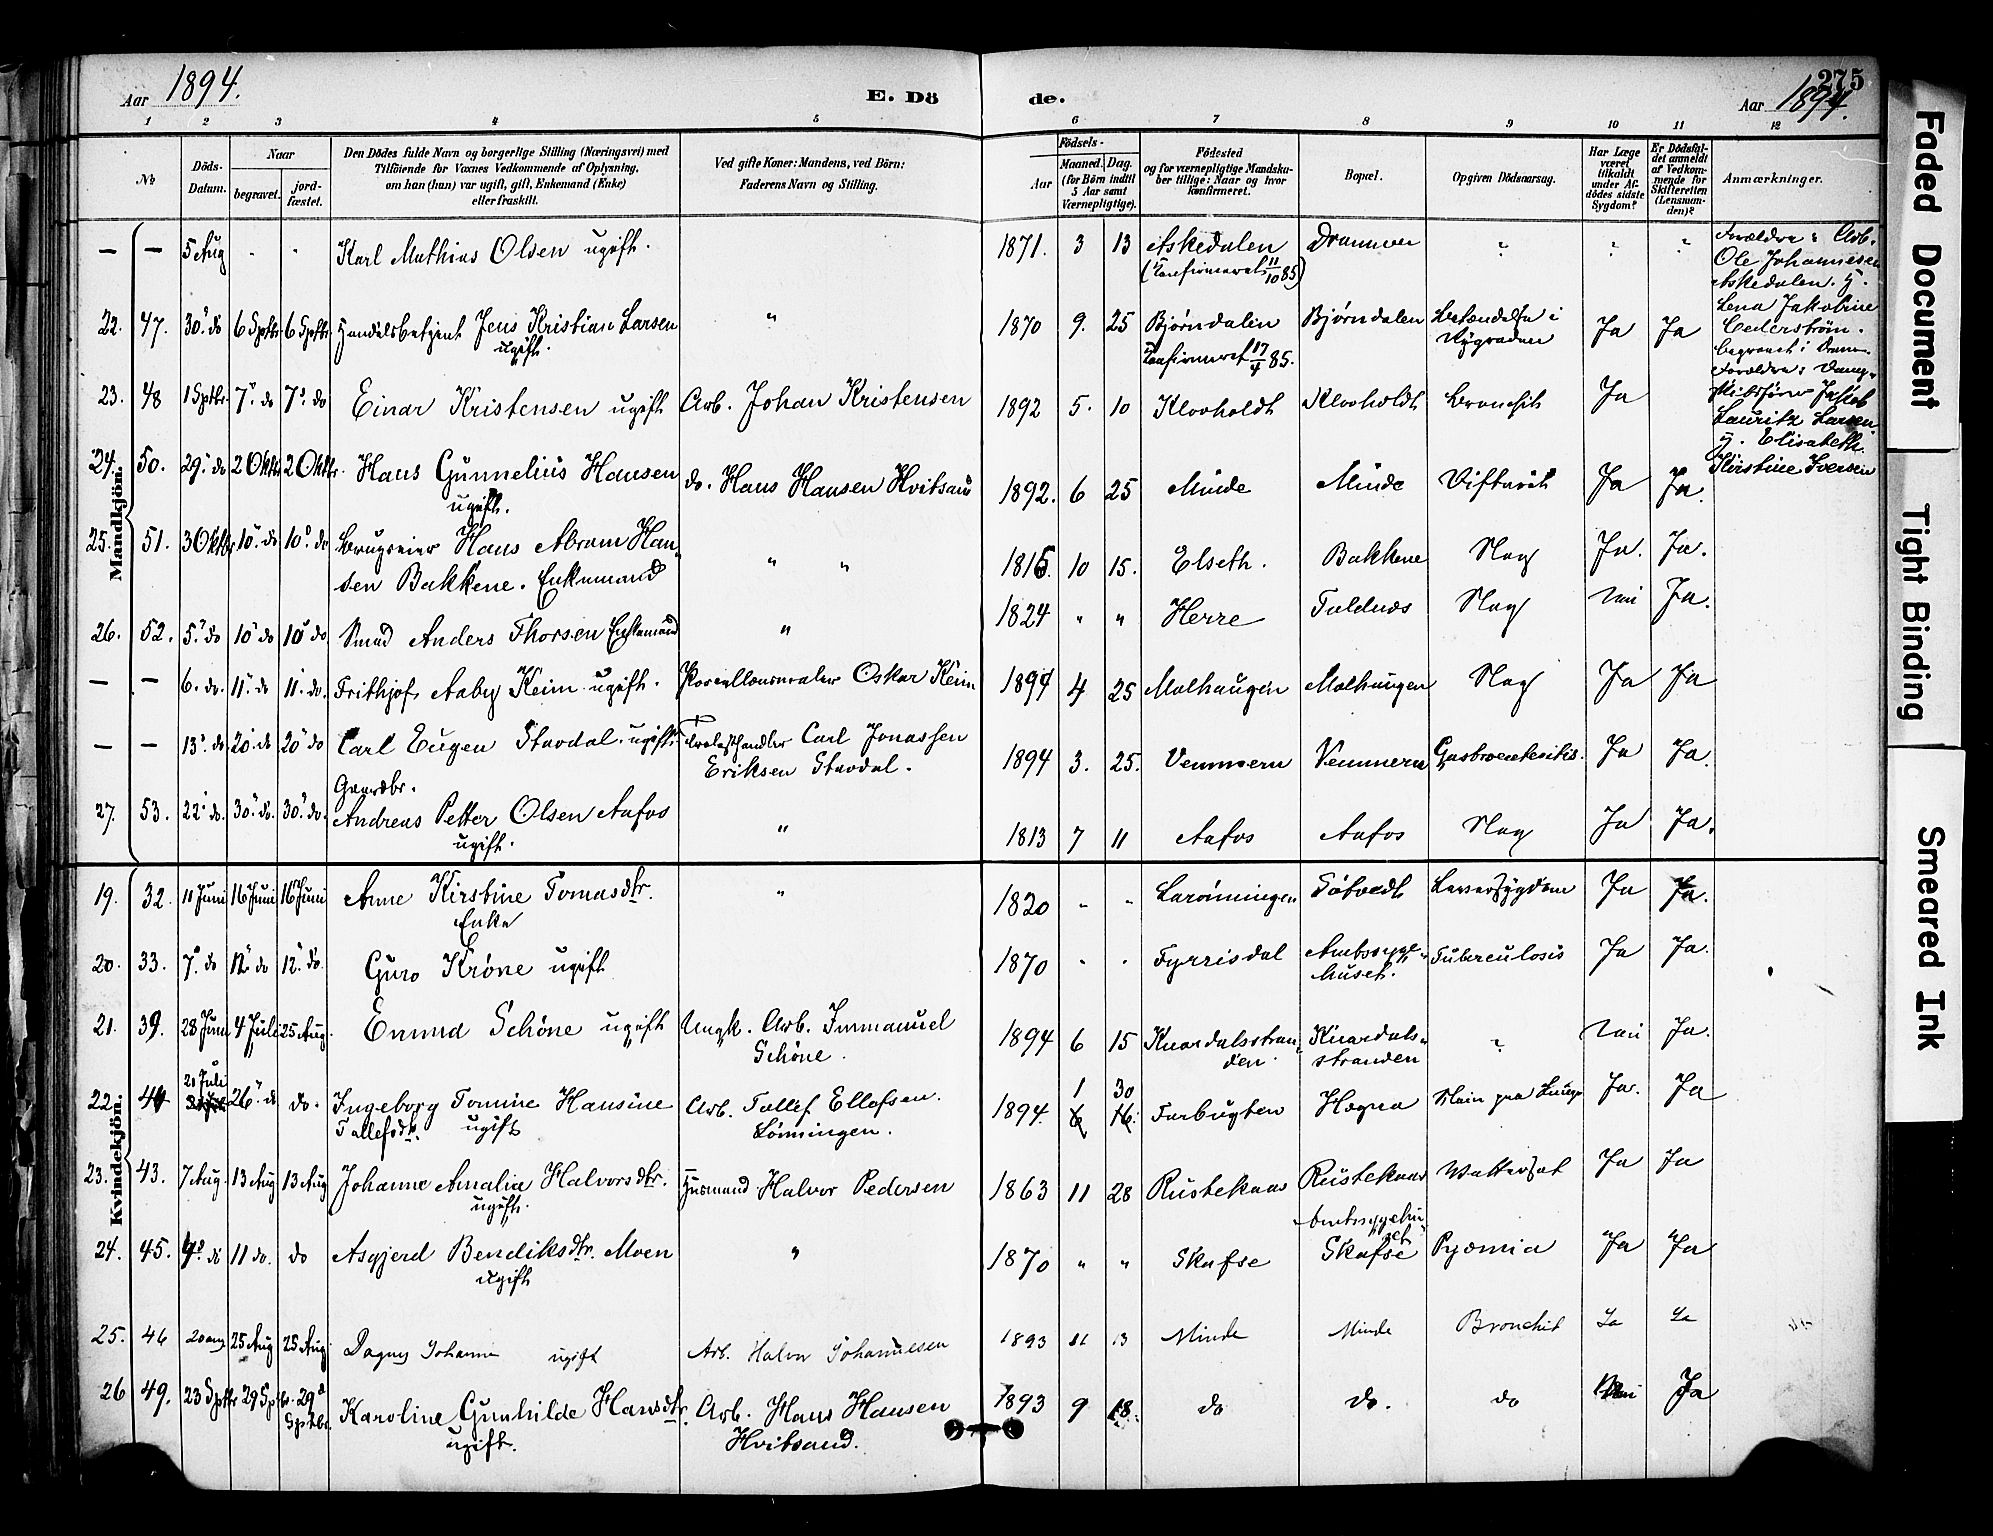 Aar 1894.
E. Dö
de.
275
Aar 1894.
1 2 3 4 5 6 7 8 9 10 11 12
№
Döds-Datum.
Naar
begravet.
jord-fæstet.
Den Dödes fulde Navn og borgerlige Stilling (Næringsvei) med
Tilföiende for Voxnes Vedkommende af Oplysning,
om han (hun) var ugift, gift, Enkemand (Enke)
eller fraskilt.
Ved gifte Koner: Mandens, ved Börn:
Faderens Navn og Stilling.
Födsels-
Aar
Maaned. Dag.
(for Börn indtil
5 Aar samt
Værnepligtige).
Födested
og for værnepligtige Mandska-
ber tillige: Naar og hvor
konfirmeret.
Bopæl.
Opgiven Dödsaarsag.
Har Læge
været
tilkaldt
under Af-
dödes sidste
Sygdom?
Er Dödsfal-
det anmeldt
af Vedkom-
mende for
Skifteretten
(Lensman-
den)?
Anmærkninger.
Mandkjön.
— — 5 Aug - - Karl Mathias Olsen ugift. 1871. 3 13 Askedalen Drammen " " "
(Konfirmeret 11/10 85)
Forældre: Arb.
Ole Johannesen
Askedalen. g.
Lena Jakobine
Cederstrøm.
begravet i Dram-
22. 47. 30. do 6 Sptbr 6 Sptbr Handelsbetjent Jens Kristian Larsen " 1870 9. 25 Bjørndalen Bjørndalen Betændelse i Ja Ja
ugift. Konfirmeret 17/4 85. Rygraden
Forældre:
Jakob
Lauritz Larsen
g. Elisabeth
Kirstine Iversen
23. 48 1 Sptbr. 7. do 7. do Einar Kristensen ugift Arb. Johan Kristensen 1892 5. 10 Klovholdt Klovholdt Bronchit Ja
24. 50. 29. do 2 Oktbr 2 Oktbr. Hans Gunnelius Hansen do. Hans Hansen Hvitsand 1892. 6 25 Minde Minde Difterit Ja Ja.
ugift.
25. 51. 3 Oktbr 10. do 10. do Brugseier Hans Abram Han- " " 1815. 10 15. Elseth. Bakkene Slag Ja. Ja.
sen Bakkene. Enkemand
26. 52. 5. do 10 do 10 do Smed Anders Thorsen Enkemand " 1824 " " Herre Faldnes Slag Nei Ja.
— — 6. do. 11. do 11. do. Frithjof Aaby Keim ugift. Porcellænsmaler Oskar Keim 1894 4 25 Molhaugen Molhaugen Slag Ja Ja
— — 13. do. 20. do 20 do Carl Eugen Stavdal. ugift. Trælasthandler Carl Jonassen 1894 3. 25. Vemmern Vemmern Gastroenteritis. Ja Ja.
Eriksen Stavdal.
Gaardbr.
27. 53. 22. do. 30. do. 30. do. Andreas Petter Olsen Aafos " 1813 7 11 Aafos Aafos Slag Ja Ja.
ugift.
Kvindekjön.
19. 32. 11 Juni 16 Juni 16 Juni Anne Kirstine Tomasdtr. " 1820 - - Larønningen Totvedt Leversygdom Ja Ja.
Enke
20. 33. 7. do 12. do 12. do. Guro Krone ugift 1870 - - Fyrrisdal Amtssyge- Tuberculosis Ja Ja.
huset.
21. 39. 28 Juni 4 Juli 25 Aug. Emmd Schöne ugift Ungk. Arb. Immanuel 1894 6 15 Knardalsstran- Knardals- " Nei Ja.
Schöne. den. stranden
22. 20 Juli 26. do do. Ingeborg Tomine Hansine Arb. Tollef Ellefsen. 1894. 1 30 Farbugten Hogna Ja. Ja
Tollefsdtr. ugift Lønningen. 6 16.
23. 43. 7 Aug. 13 Aug 13 Aug Johanne Amalia Halvorsdtr. Husmand Halvor Pedersen 1863 11 28 Rustekaas Rustekaas Wattersot Ja Ja
ugift.
24. 45. 4. do 11 do. do Asgjerd Bendiksdtr. Moen " 1870 " " Skafse Amtssygehu-set Skafse Pyæmia Ja Ja
ugift
25. 46 20 aug 25 Aug 25 Aug Dagny Johanne ugift Arb. Halvor Johannesen 1893 11 13 Minde Minde Bronchit Ja Ja
26 49. 23 Sptbr 29 Sptb. 29 Sptbr. Karoline Gunhilde Hansdtr. Arb. Hans Hansen 1893 9 18. do do. do Nei Ja
ugift. Hvitsand.
Faded Document
Tight Binding
Smeared Ink